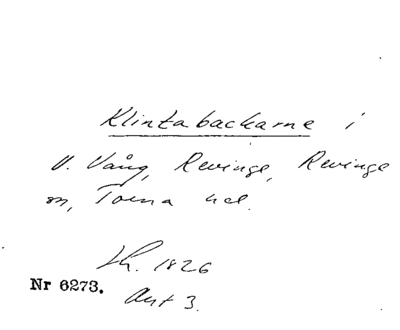 Klintabackarne i
V. Vång, Revinge, Revinge
sn, Torna hd.
Lh. 1826
Nr 6273.
Akt 3.